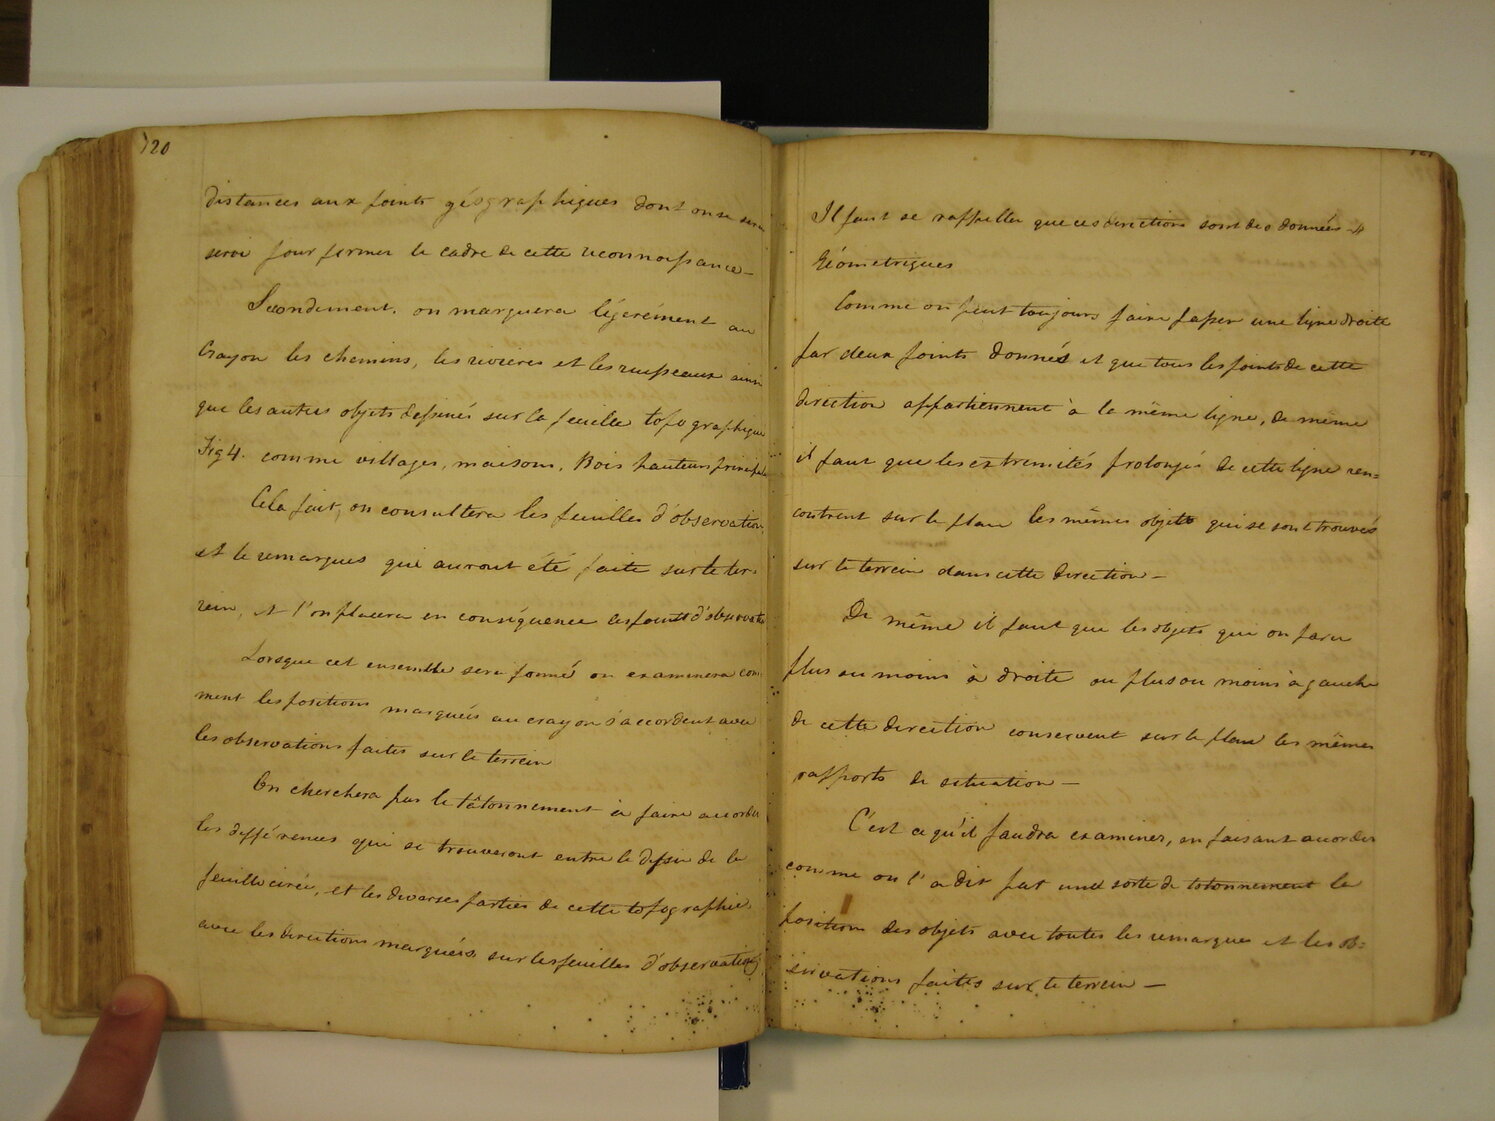 120
distances aux points géographiques dont on se sera
servi pour former le cadre de cette reconnoissance —
Secondement, on marquera légérément au
Crayon les chemins, les rivieres et les ruisseaux ainsi
que les autres objets dessinés sur la feuille topographique
Fig 4. comme villages, maisons, Bois hauteurs
Cela fait, on consultera les feuilles d'observation
et le remarques qui auront été faite sur le ter-
rein, et l'on placera en conséquence les points
Lorsque cet ensemble sera formé on examinera com
ment les positions marqués au crayon s'accordent avec
les observations faites sur le terrein
On cherchera par le tâtonnement à faire accorder
les différences qui se trouveront entre le dessin de la
feuille cirée, et les diverses parties de cette topographie,
avec les directions marquées sur les feuilles d'observations
121
Il faut se rappeller que ces directions sont des données
Géometriques
Comme on peut toujours faire passer une ligne droite
par deux points donnés et que tous les points de cette
direction appartiennent à la même ligne, de même
il faut que les extremités prolongés de cette ligne ren=
contrent sur le plan les mêmes objets qui se sont trouvés
sur le terrein dans cette direction —
De même il faut que les objets que on
plus ou moins à droite ou plus ou moins à gauche
de cette direction conservent sur le plan les mêmes
rapports de situation —
C'est ce qu'il faudra examiner, en faisant accorder
comme on l'a dit par une sorte de totonnement la
position des objets avec toutes les remarques et les ob=
servations faites sur le terrein —